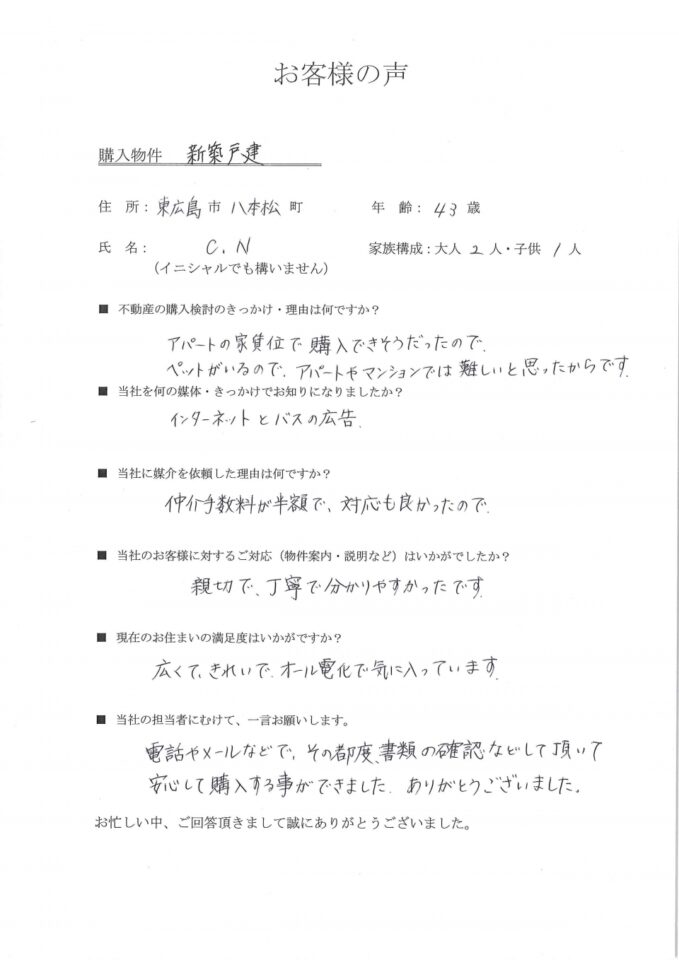 お客様の声
購入物件 新築戸建
住 所：東広島市 八本松 町 年 齢：43 歳
氏 名： C.N 家族構成：大人 2 人・子供 1 人
（イニシャルでも構いません）
■ 不動産の購入検討のきっかけ・理由は何ですか？
アパートの家賃位で購入できそうだったので、
ペットがいるので、アパートやマンションでは難しいと思ったからです。
■ 当社を何の媒体・きっかけでお知りになりましたか？
インターネットとバスの広告.
■ 当社に媒介を依頼した理由は何ですか？
仲介手数料が半額で、対応も良かったので.
■ 当社のお客様に対するご対応（物件案内・説明など）はいかがでしたか？
親切で、丁寧で分かりやすかったです.
■ 現在のお住まいの満足度はいかがですか？
広くて、きれいで、オール電化で気に入っています.
■ 当社の担当者にむけて、一言お願いします。
電話やメールなどで、その都度、書類の確認などして頂いて
安心して購入する事ができました. ありがとうございました。
お忙しい中、ご回答頂きまして誠にありがとうございました。